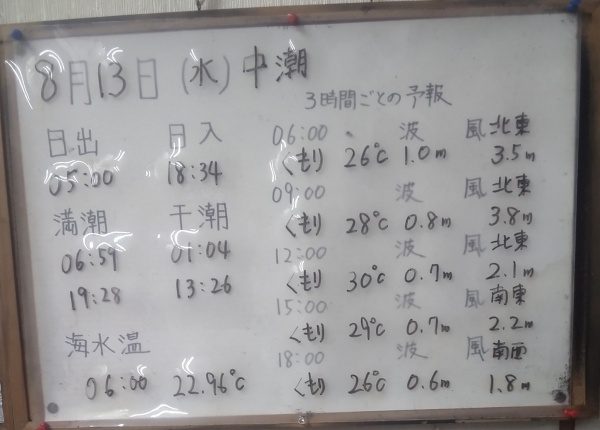 8月13日(水)中潮
3時間ごとの予報
日出 日入
05:00 18:34
満潮 干潮
06:59 01:04
19:28 13:26
海水温
06:00 22.96℃
06:00 波 風 北東
くもり 26℃ 1.0m 3.5m
09:00 波 風 北東
くもり 28℃ 0.8m 3.8m
12:00 波 風 北東
くもり 30℃ 0.7m 2.1m
15:00 波 風 南東
くもり 29℃ 0.7m 2.2m
18:00 波 風 南西
くもり 26℃ 0.6m 1.8m